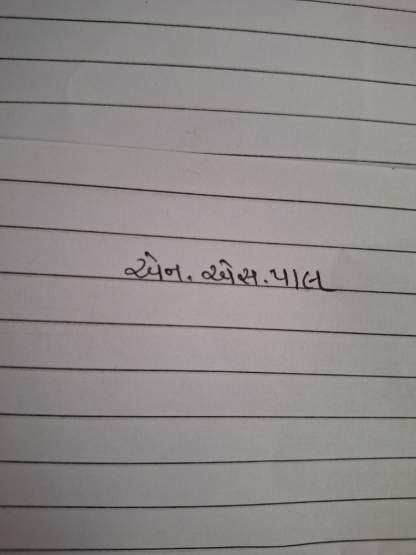 એન. એસ. પાલ